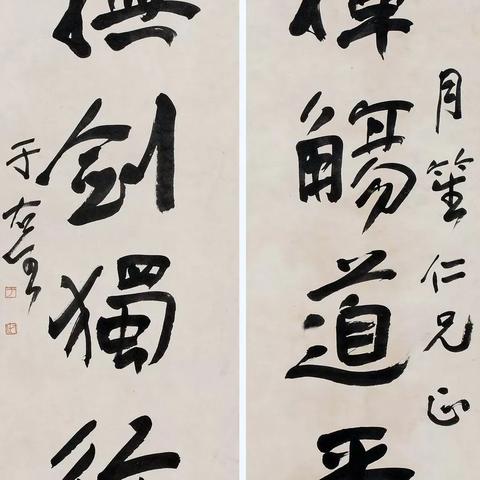 月笙仁兄正
揮觴道平
撫劍獨行
于右任